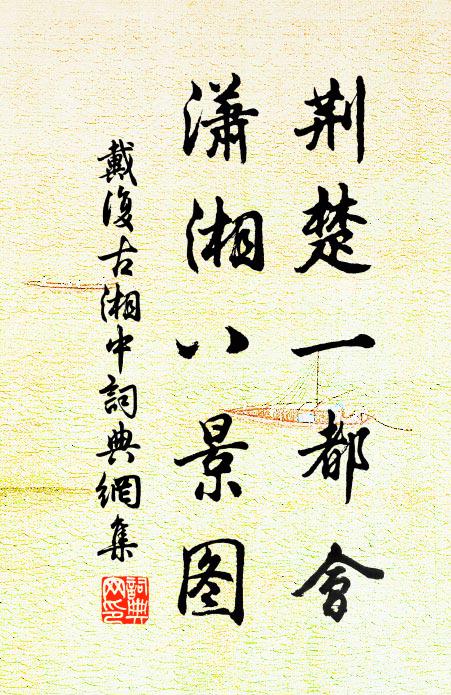 荆楚一都會
瀟湘八景图
戴復古湘中詞典網集
詞典网印